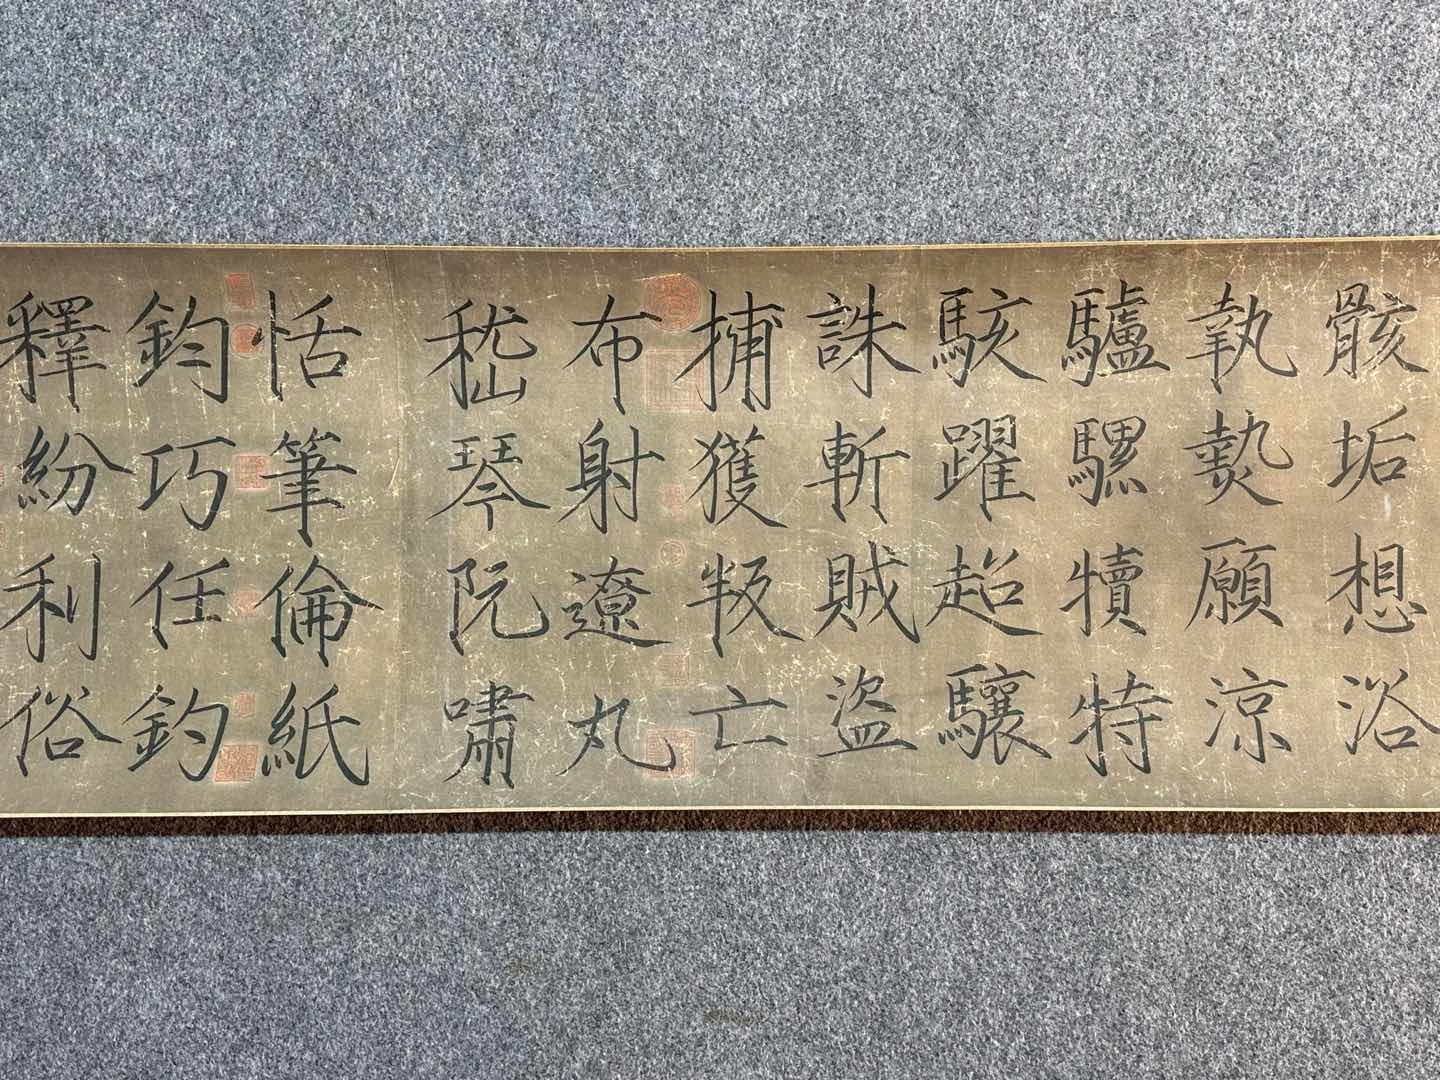 骸垢想浴
執熱願涼
驢騾犢特
駭躍超驤
誅斬賊盜
捕獲叛亡
布射遼丸
嵇琴阮嘯
恬筆倫紙
鈞巧任釣
釋紛利俗